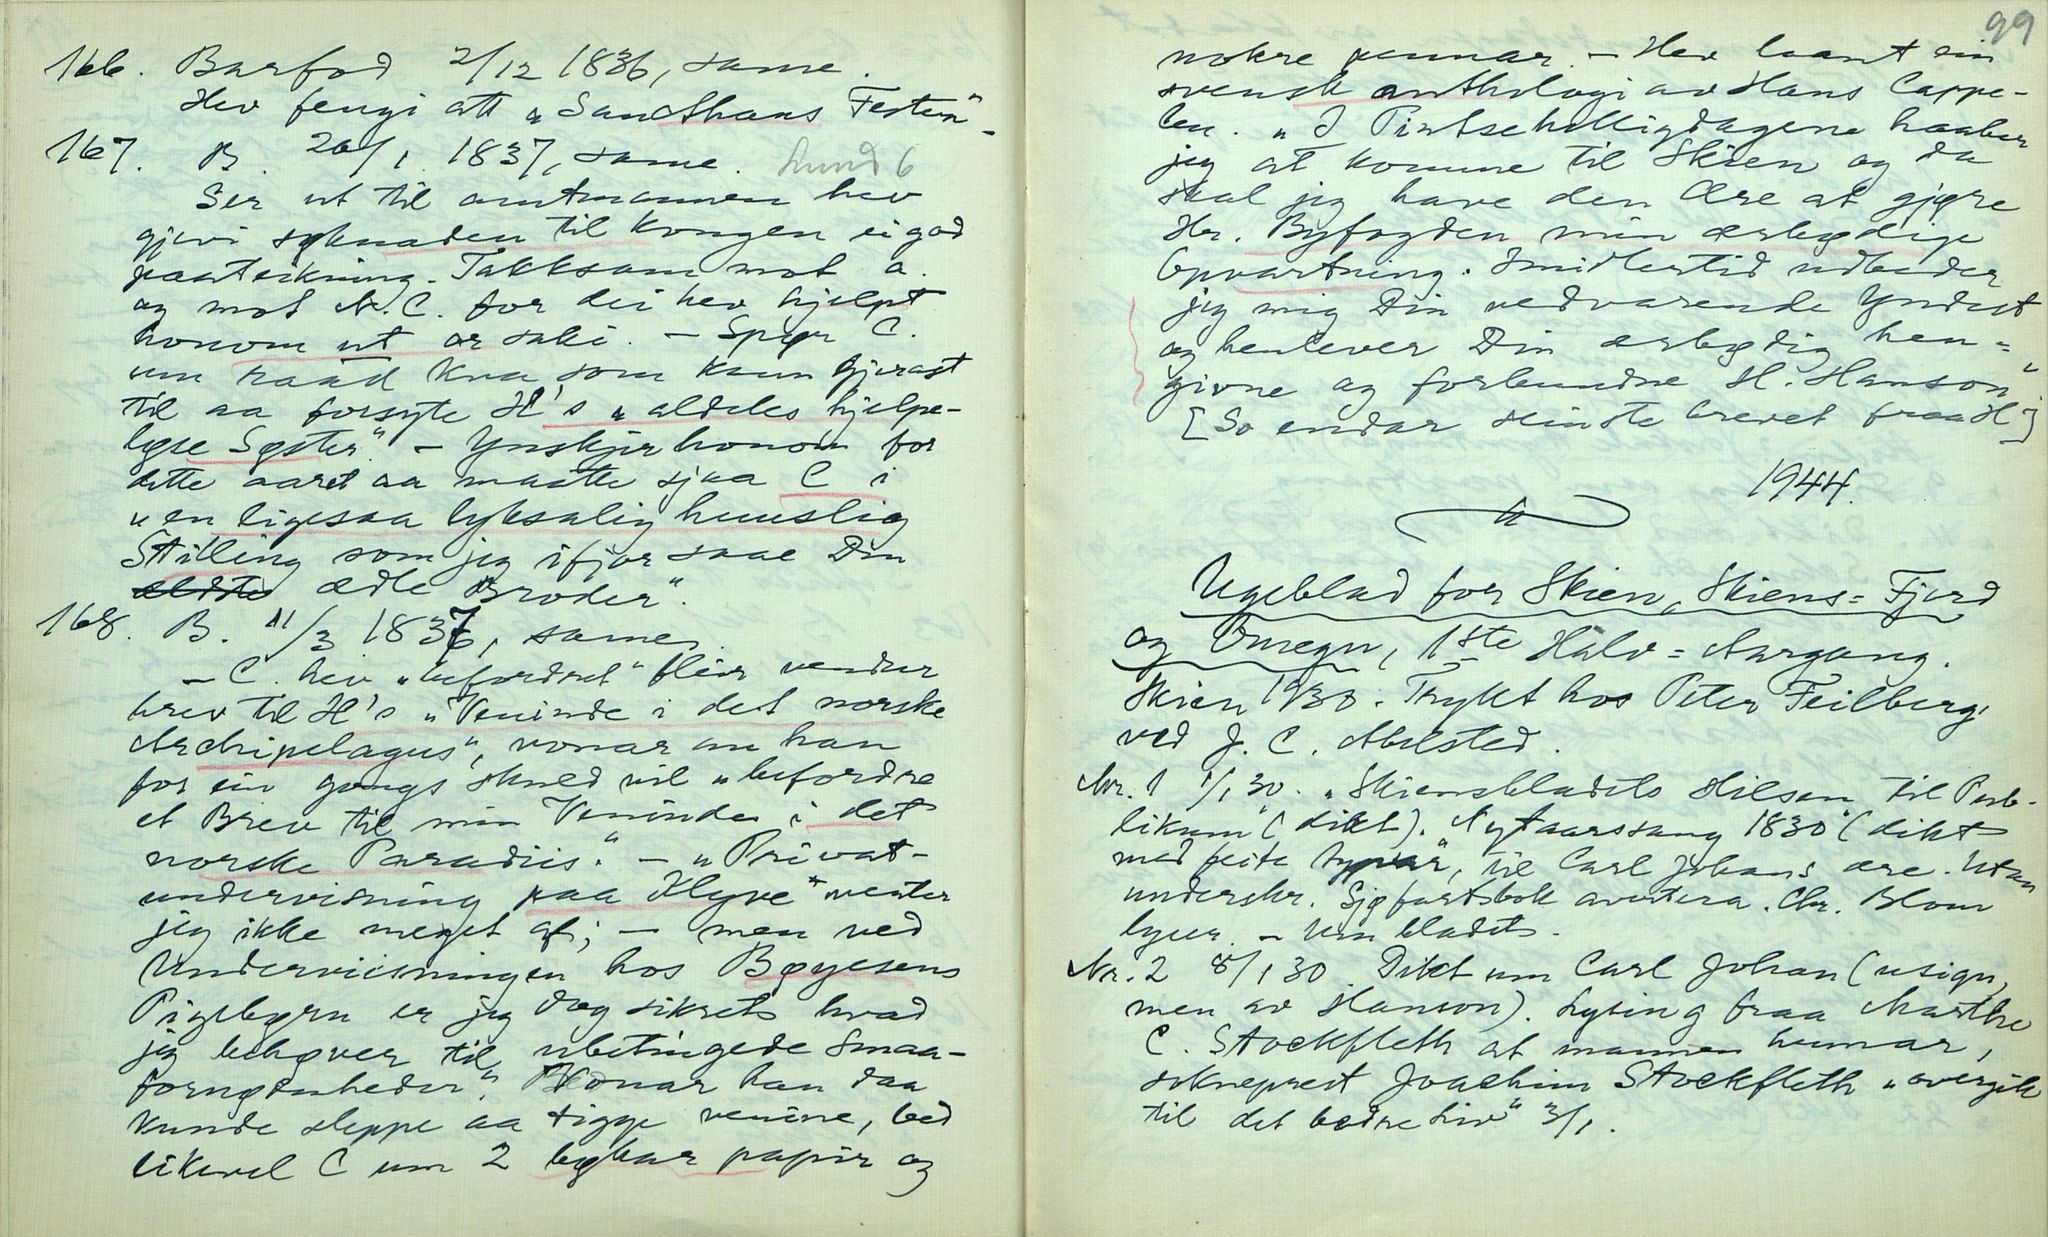 166. Barfod 2/12 1836, same.
Hev fengi att „Sancthans Festen“.
167. B. 20/1 1837, same. Lund 6
Ser ut til amtmannen hev
gjevi søknaden til Kongen ei god
paateikning. Takksam mot a.
og mot N.C. for dei hev hjelpt
honom ut or saki. — Spør C.
um raad kva som kann gjerast
til aa forsyte H's „aldeles hjelpe-
løse Søster“. — Ynskjer honom for
dette aaret aa maatte sjaa C i
„en ligesaa lyksalig huuslig
Stilling som jeg ifjor saae Din
ældste ædle Broder“.
168. B. 11/3 1837, same.
— C. hev „befordret“ fleir vendur
brev til H's „Veninde i det norske
Archipelagus“, vonar um han
for ein gongs skuld vil „befordre
et Brev til min Veninde i det
norske Paradiis“. — „Privat-
undervisning paa Klyve“ venter
jeg ikke meget af; — men ved
Underviisningen hos Bøyesens
Pigebørn er jeg dog sikret hvad
jeg behøver til ubetingede Smaa-
fornødenheder“. Vonar han daa
kunde sleppe aa tigge venine, bed
likevel C um 2 bøker papir og
99
nokre pennar. — Hev laant ein
svensk anthologi av Hans Cappe-
len. „I Pintsehelligdagene haaber
jeg at komme til Skien og da
skal jeg have den Ære at gjøre
Hr. Byfogden min ærbødige
Opvartning. Imidlertid udbeder
jeg mig Din vedvarende Yndest
og henlever Din ærbødig hen=
givne og forbundne H. Hanson“
[So endar siste brevet fraa H]
1944.
Ugeblad for Skien, Skiens=Fjord
og Omegn, 1ste Halv=Aargang.
Skien 1830. Trykt hos Peter Feilberg,
ved J. C. Melsted.
Nr. 1 1/1 30. „Skiensbladets Hilsen til Pub-
likum“ (dikt). Nytaarssang 1830 (dikt
med feite typar, til Carl Johans ære. Utan
underskr. Sjøfartsbok avertera. Chr. Blom
lyser. — Um bladet.
Nr. 2 8/1 30 Dikt um Carl Johan (usign,
men av Hanson). Lysing fraa Marthe
C. Stockfleth at mannen hennar,
sokneprest Joachim Stockfleth „overgik
til det bedre Liv“ 3/1.